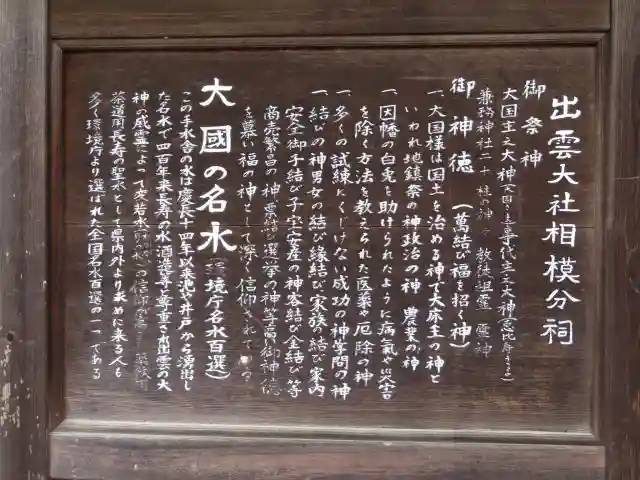 出雲大社相模分祠
御祭神
大国主之大神(大国さま)事代主之大神(恵比寿さま)
兼務神社二十 様の神々 教徒祖霊 霊神
御神徳 (萬結び福を招く神)
一、大国様は国土を治める神で大床主の神と
いわれ地鎮祭の神政治の神 農業の神
一、因幡の白兎を助けられたように病気や災害
を除く方法を教えられた医薬や厄除の神
一、多くの試練にくじけない成功の神学問の神
一、結びの神男女の結び縁結び家族の結び家内
安全御子結び子宝安産の神客結び金結び等
商売繁昌の神 選挙の神等高い御神徳
を慕い福の神として深く信仰されている
大國の名水(環境庁名水百選)
この手水舎の水は慶長十四年以来池や井戸から湧出し
た名水で四百年来長寿の水酒造等に尊重され出雲の大
神の威霊によって変若水 の信仰
茶道用長寿の聖水として県内外より求めに来る人も
多く環境庁より選ばれた全国名水百選の一つである